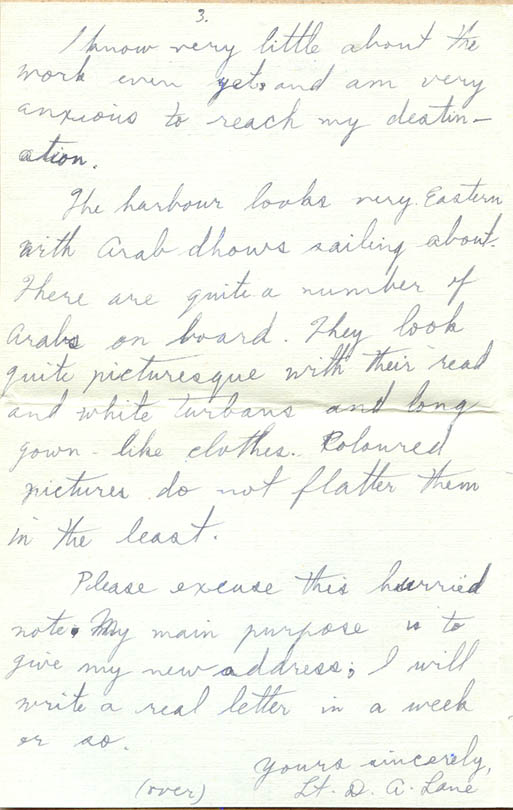 3.
I know very little about the
work even yet, and am very
anxious to reach my destin-
ation.
The harbour looks very Eastern
with Arab dhows sailing about.
There are quite a number of
Arabs on board. They look
quite picturesque with their read
and white turbans and long
gown-like clothes. Coloured
pictures do not flatter them
in the least.
Please excuse this hurried
note. My main purpose is to
give my new address; I will
write a real letter in a week
or so.
Yours sincerely,
Lt. D. A. Lane
(over)